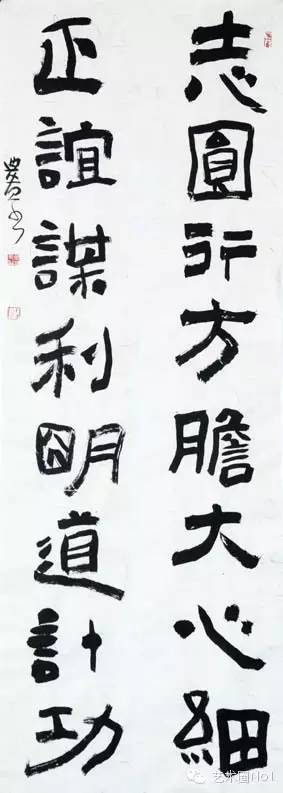 志圓行方膽大心細
正誼謀利朙道計功
艺术圈No1